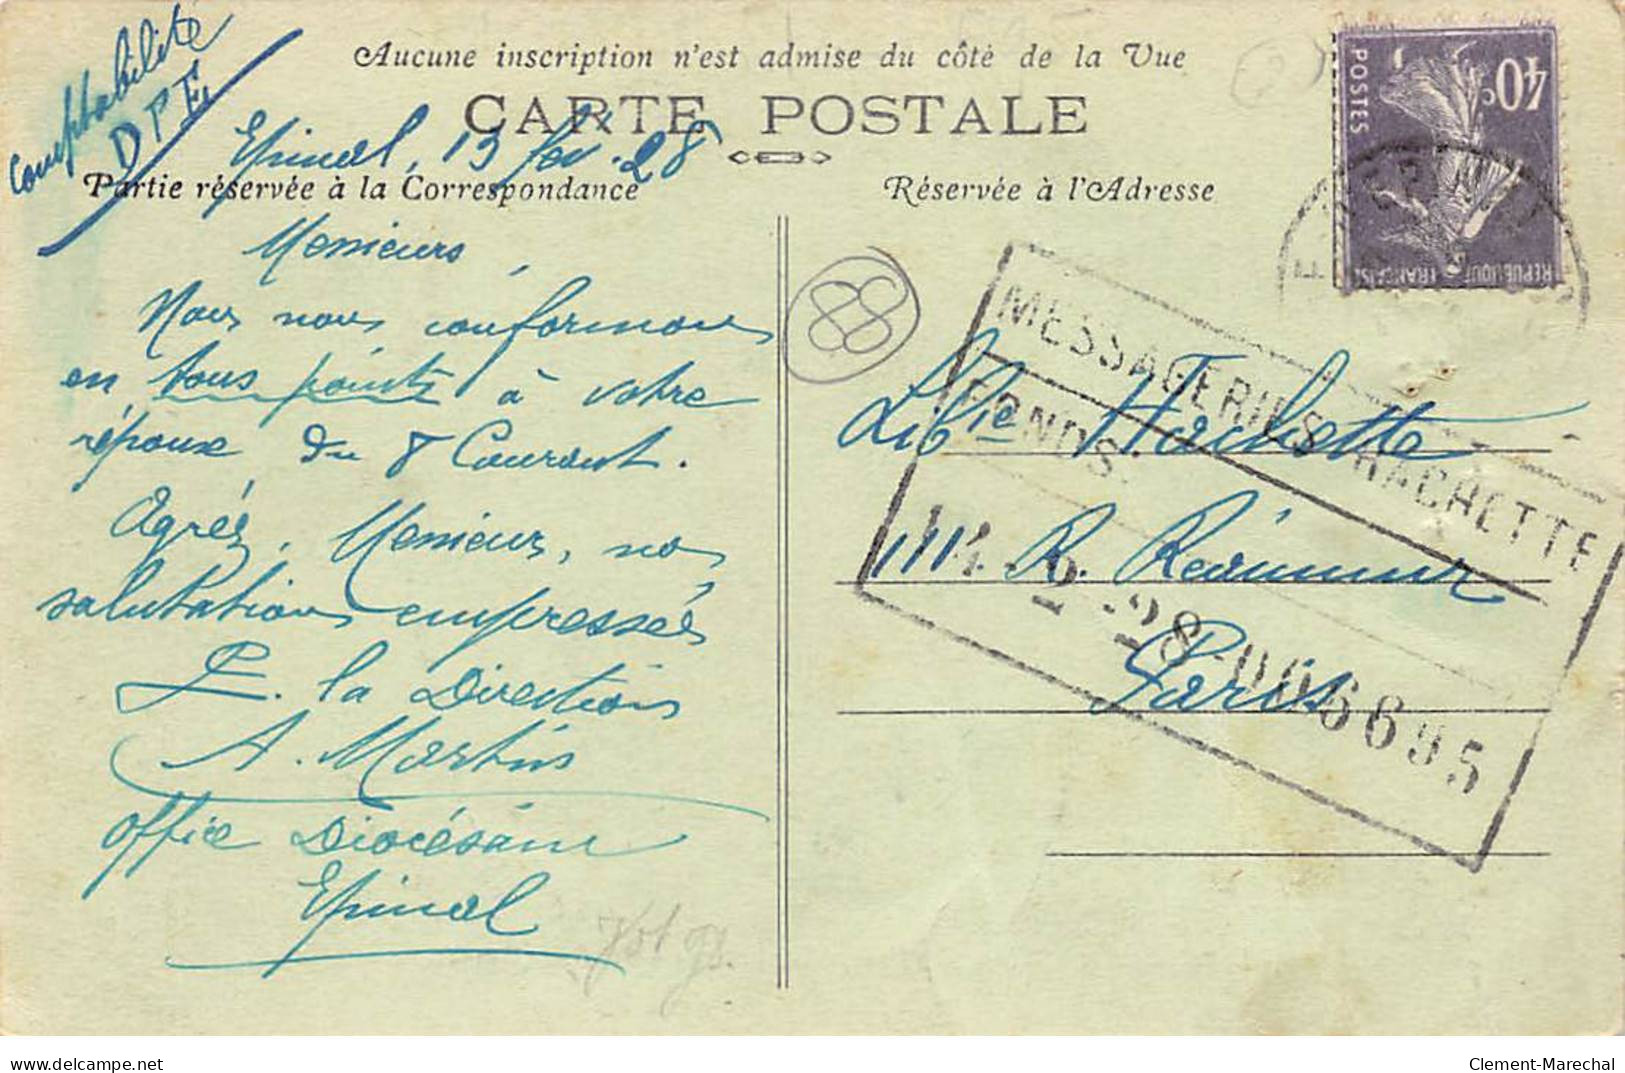 Aucune inscription n'est admise du côté de la Vue
CARTE POSTALE
Partie réservée à la Correspondance
Réservée à l'Adresse
Comptabilité
DPE
Epinal, 13 fév. 28
Messieurs,
Nous nous conformons
en tous points à votre
réponse du 8 Courant.
Agréez, Messieurs, nos
salutations empressées
P. la Direction
A. Martin
Office Diocésain
Epinal
88
40c
POSTES
REPUBLIQUE FRANÇAISE
MESSAGERIES HACHETTE
FONDS.
14 -2 -28 -006695
Lib^ie Hachette
111. R. Réaumur
Paris
delcampe.net
Clement-Marechal